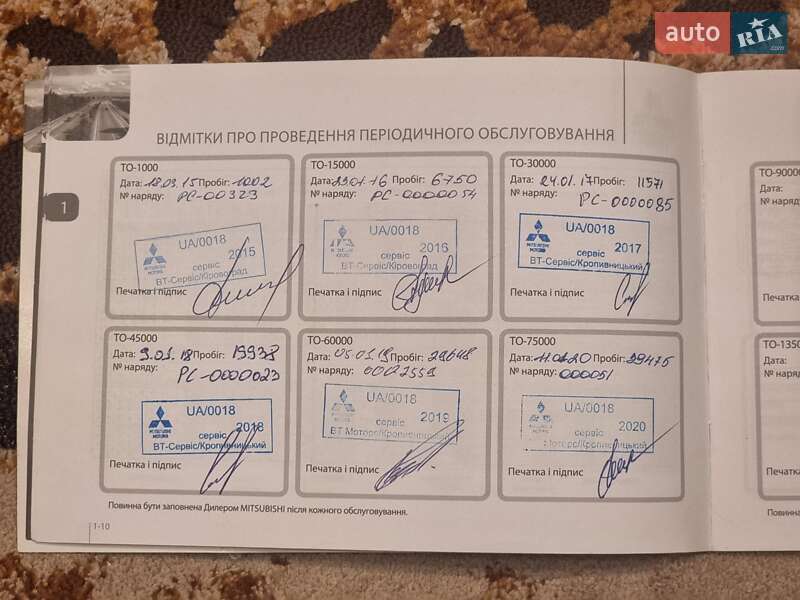 auto RIA.com
ВІДМІТКИ ПРО ПРОВЕДЕННЯ ПЕРІОДИЧНОГО ОБСЛУГОВУВАННЯ
1
ТО-1000
Дата: 18.03.15 Пробіг: 1002
№ наряду: РС-00323
UA/0018
2015
MITSUBISHI MOTORS
сервіс
ВТ-Сервіс/Кіровоград
Печатка і підпис
ТО-15000
Дата: 23.01.16 Пробіг: 6750
№ наряду: РС-0000054
UA/0018
2016
сервіс
ВТ-Сервіс/Кіровоград
Печатка і підпис
ТО-30000
Дата: 24.01.17 Пробіг: 11571
№ наряду: РС-0000085
UA/0018
MITSUBISHI MOTORS
сервіс 2017
ВТ-Сервіс/Кропивницький
Печатка і підпис
ТО-45000
Дата: 9.01.18 Пробіг: 19938
№ наряду: РС-0000023
UA/0018
MITSUBISHI MOTORS
сервіс 2018
ВТ-Сервіс/Кропивницький
Печатка і підпис
ТО-60000
Дата: 05.01.19 Пробіг: 29648
№ наряду: 0002559
UA/0018
сервіс 2019
ВТ Моторс/Кропивницький
Печатка і підпис
ТО-75000
Дата: Пробіг: 39475
№ наряду: 000051
UA/0018
сервіс 2020
Моторс/Кропивницький
Печатка і підпис
Повинна бути заповнена Дилером MITSUBISHI після кожного обслуговування.
1-10
ТО-9000
Дата:
№ наряду
Печатка
ТО-1350
Дата:
№ наряд
Печатка
Повинна